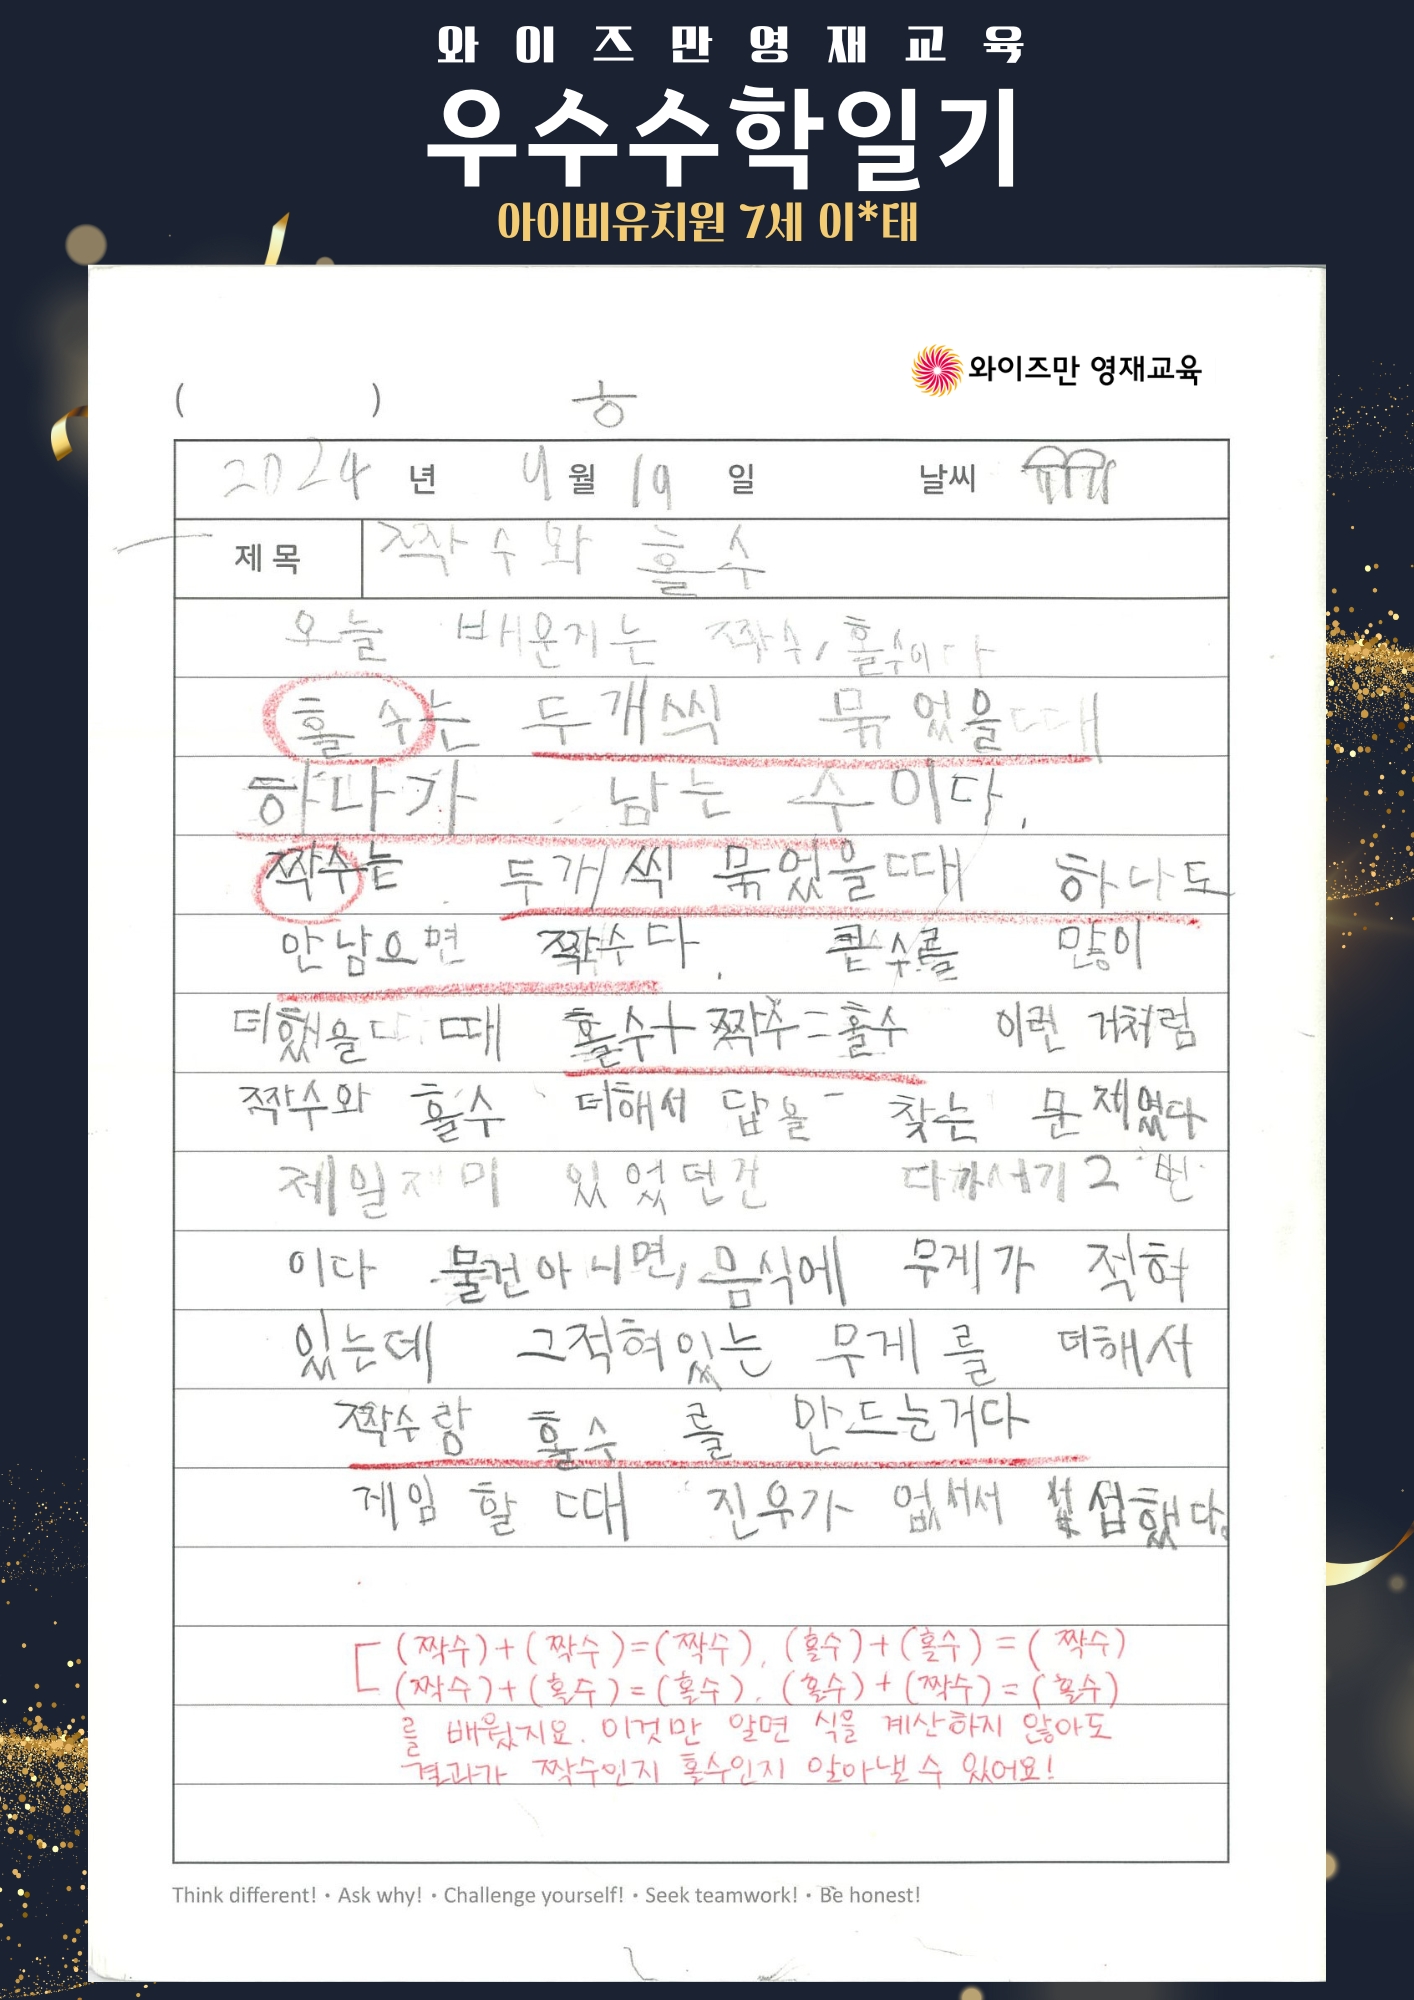 와이즈만영재교육
우수수학일기
아이비유치원 7세 이*태
와이즈만 영재교육
( ) ㅎ
2024 년 4월 19 일 날씨
제 목 짝수와 홀수
오늘 배운지는 짝수, 홀수이다
홀수는 두개씩 묶었을때
하나가 남는 수이다.
짝수는 두개씩 묶었을때 하나도
안남으면 짝수다. 큰수를 많이
더했을 때 홀수+짝수=홀수 이런 거처럼
짝수와 홀수 더해서 답을 찾는 문제였다
제일재미 있었던건 다가서기2번
이다 물건아니면, 음식에 무게가 적혀
있는데 그적혀있는 무게를 더해서
짝수랑 홀수를 만드는거다
게임 할때 진우가 없서서 섭했다.
(짝수)+(짝수)=(짝수), (홀수)+(홀수)=(짝수)
(짝수)+(홀수)=(홀수), (홀수)+(짝수)=(홀수)
를 배웠지요. 이것만 알면 식을 계산하지 않아도
결과가 짝수인지 홀수인지 알아낼 수 있어요!
Think different! · Ask why! · Challenge yourself! · Seek teamwork! · Be honest!